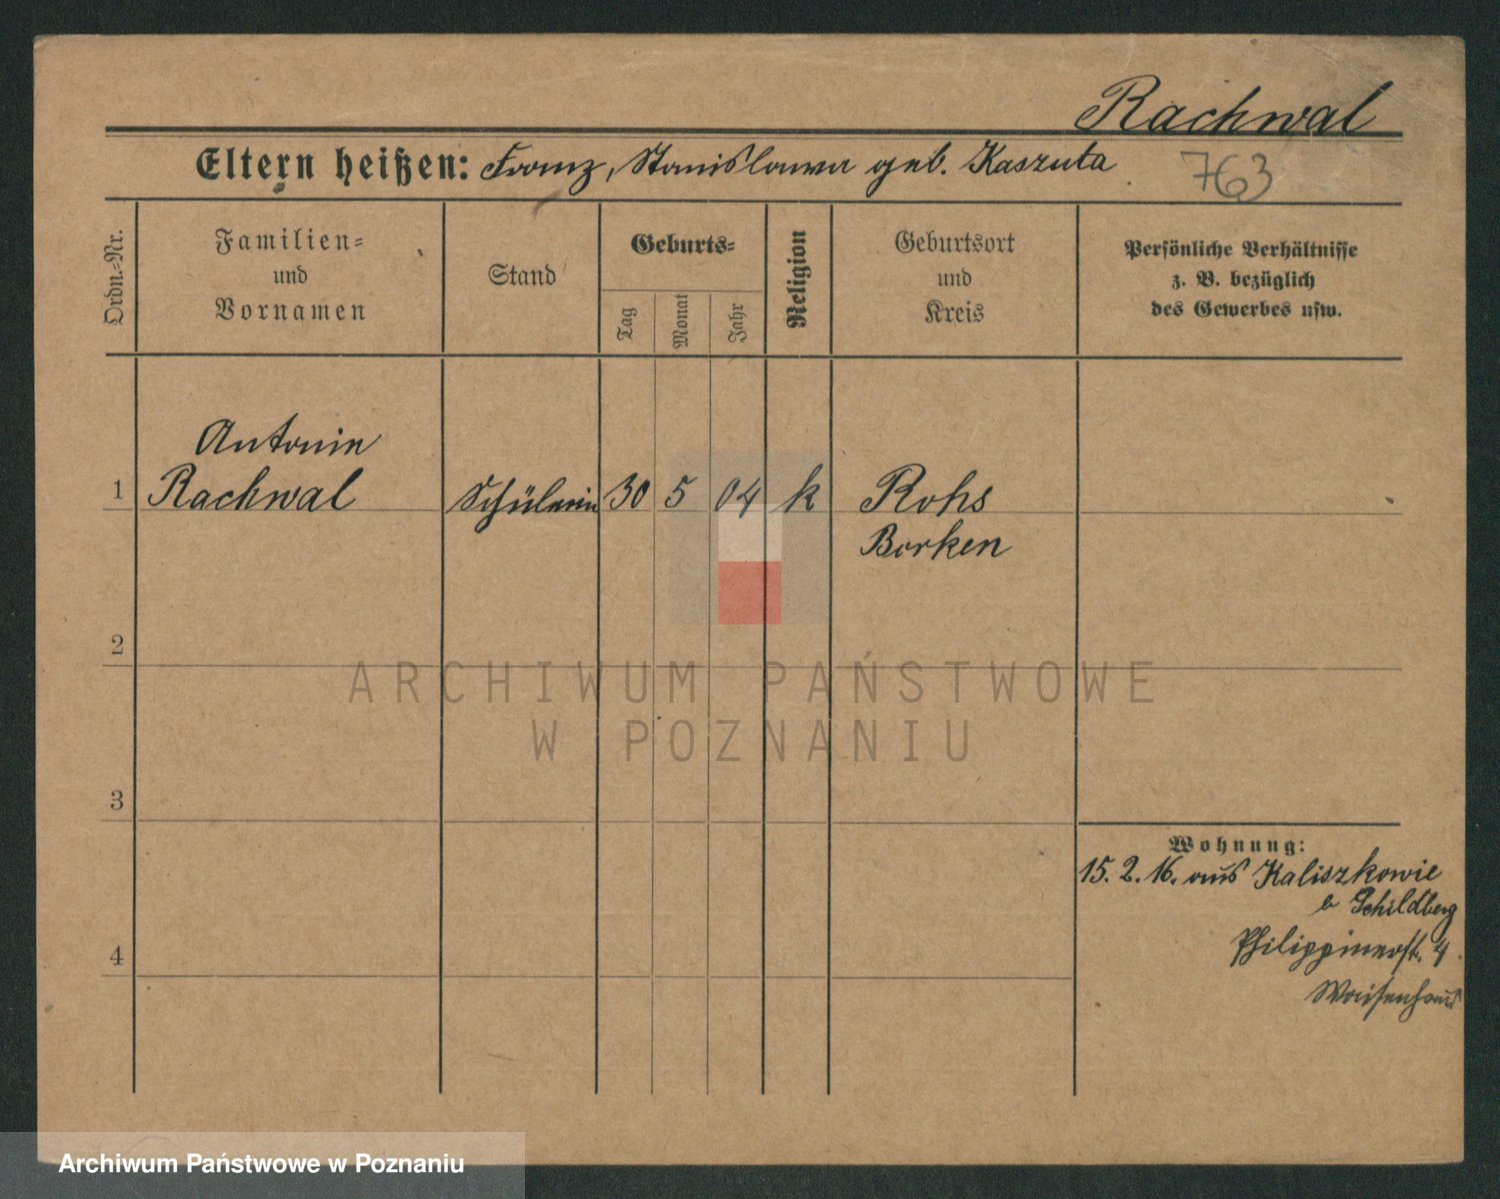 Rachwal
Eltern heißen: Franz, Stanislawa geb. Kaszuta
763
Ordn.-Nr.
Familien-
und
Vornamen
Stand
Geburts-
Tag
Monat
Jahr
Religion
Geburtsort
und
Kreis
Persönliche Verhältnisse
z. B. bezüglich
des Gewerbes usw.
Antonie
1 Rachwal Schülerin 30 5 04 k Rohs
Borken
2
ARCHIWUM PAŃSTWOWE
W POZNANIU
3
Wohnung:
15. 2. 16. aus Kaliszkowie
b Schildberg
4
Philippinerstr. 4.
Waisenhaus
Archiwum Państwowe w Poznaniu